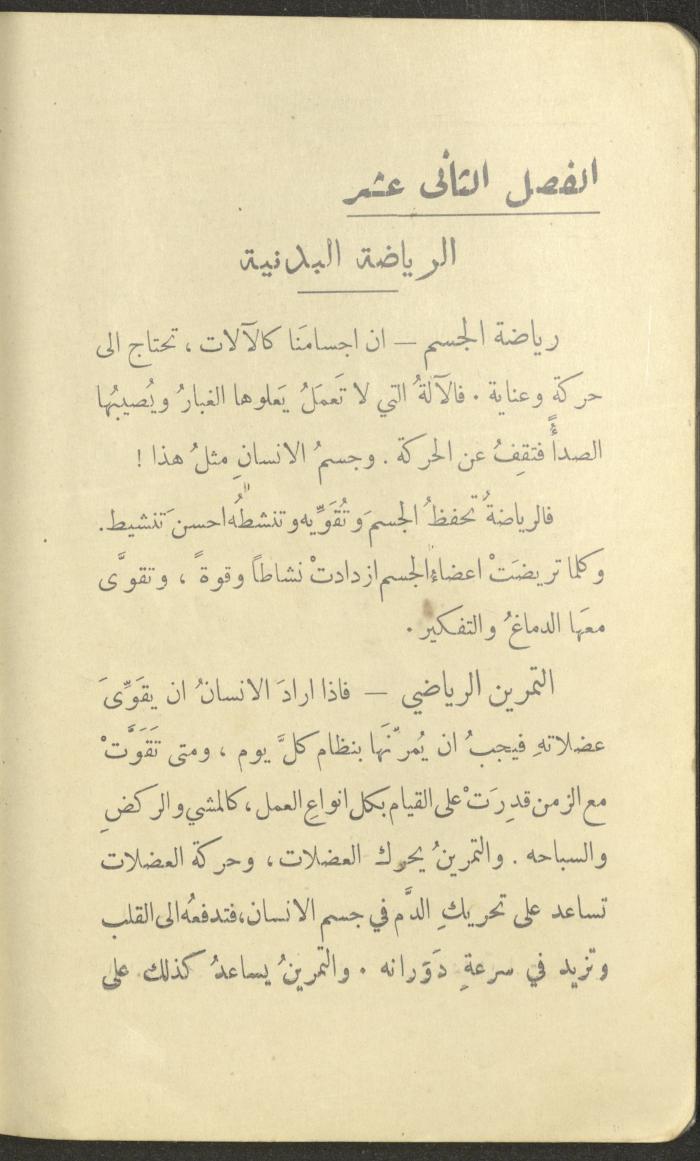 الفصل الثانى عشر
الرياضة البدنية
رياضة الجسم — ان اجسامَنا كالآلات ، تحتاج الى
حركةٍ وعناية . فالآلةُ التي لا تَعمَلُ يَعلوها الغبارُ ويُصيبُها
الصدأُ فتقِفُ عن الحركة . وجسمُ الانسانِ مثلُ هذا !
فالرياضةُ تحفظُ الجسمَ وتُقَوِّيه وتنشطُه احسنَ تنشيط .
وكلما تريضَتْ اعضاءُ الجسم ازدادتْ نشاطاً وقوةً ، وتقوَّى
معَها الدماغُ والتفكير .
التمرين الرياضي — فاذا ارادَ الانسانُ ان يقوِّىَ
عضلاتهِ فيجبُ ان يُمرِّنَها بنظام كلَّ يوم ، ومتى تَقَوَّتْ
مع الزمن قدِرَتْ على القيام بكل انواعِ العمل ، كالمشي والركضِ
والسباحه . والتمرينُ يحرك العضلات ، وحركة العضلات
تساعد على تحريكِ الدَّم في جسم الانسان ، فتدفعُه الى القلب
وتزيد في سرعةِ دَوَرانه . والتمرينُ يساعدُ كذلك على